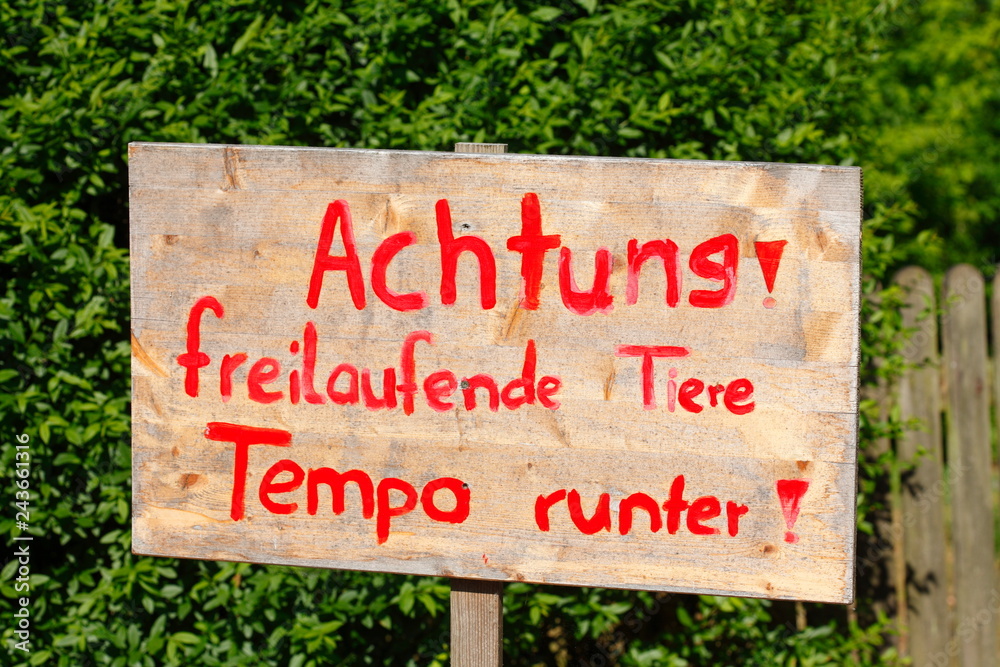 Achtung!
freilaufende Tiere
Tempo runter!
Adobe Stock | #243661316